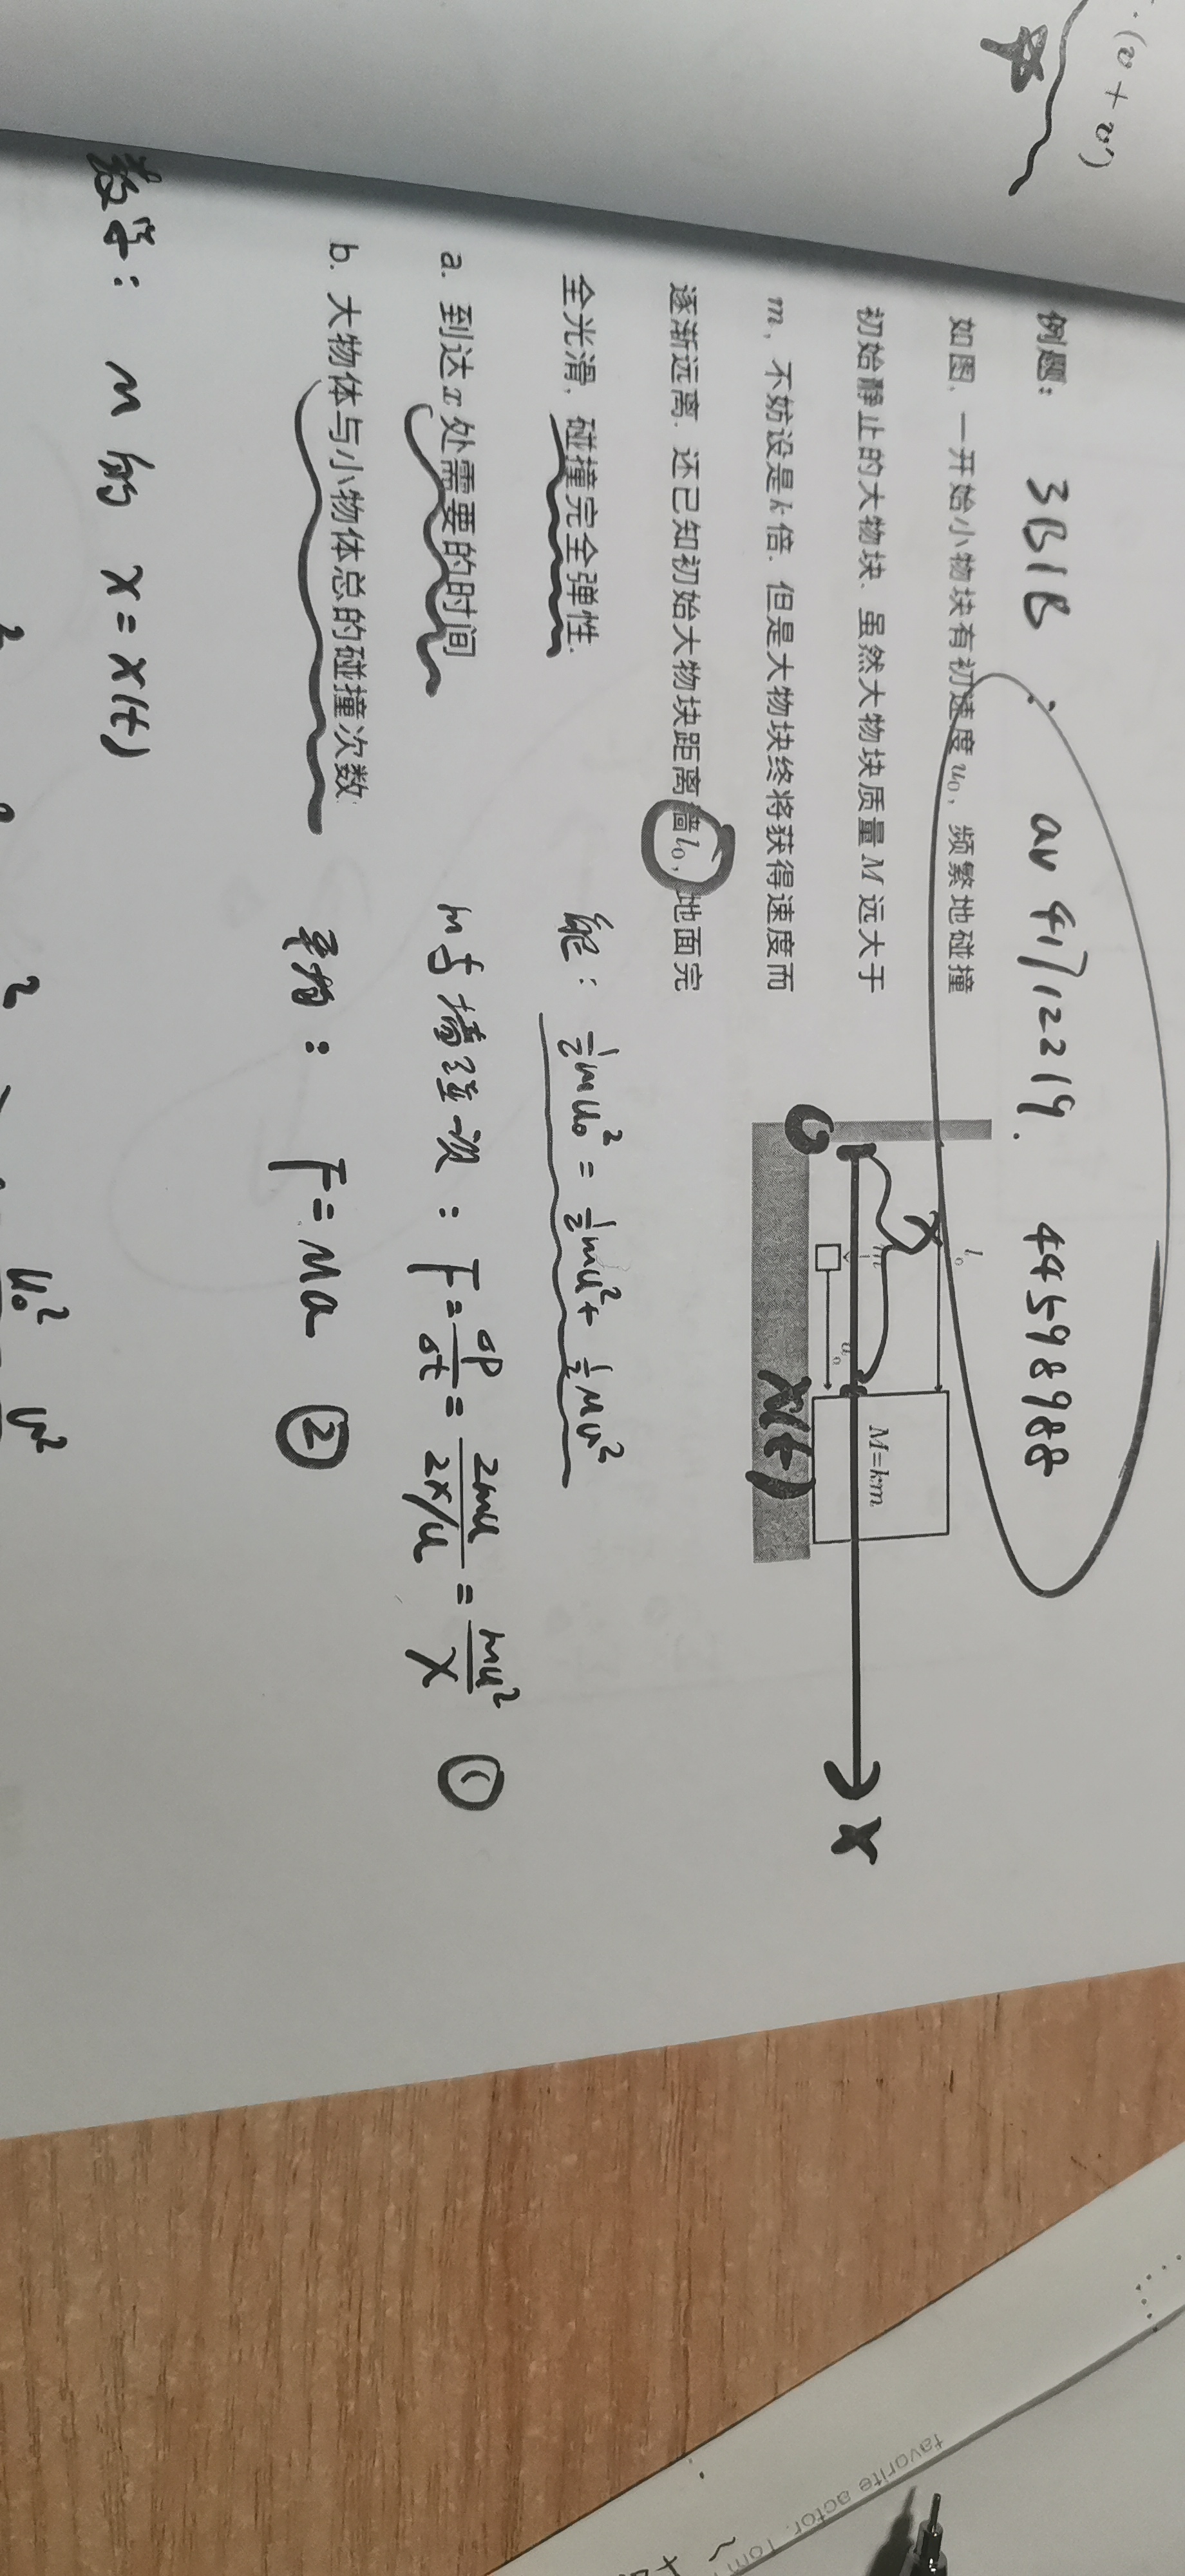 ·(v + v')
例题： 3B1B : av 41712219. 44598988
如图，一开始小物块有初速度 u₀，频繁地碰撞
初始静止的大物块．虽然大物块质量 M 远大于
m，不妨设是 k 倍．但是大物块终将获得速度而
逐渐远离．还已知初始大物块距离墙 l₀，地面完
全光滑，碰撞完全弹性．
a. 到达 x 处需要的时间
b. 大物体与小物体总的碰撞次数
l₀
x
m
u₀
M=km
O
x(t)
x
能： ½mu₀² = ½mu² + ½Mv²
m与墙碰一次： F = Δp/Δt = 2mu/(2x/u) = mu²/x ①
F = Ma ②
数学： M 的 x = x(t)
u₀² v²
favorite actor. Tom